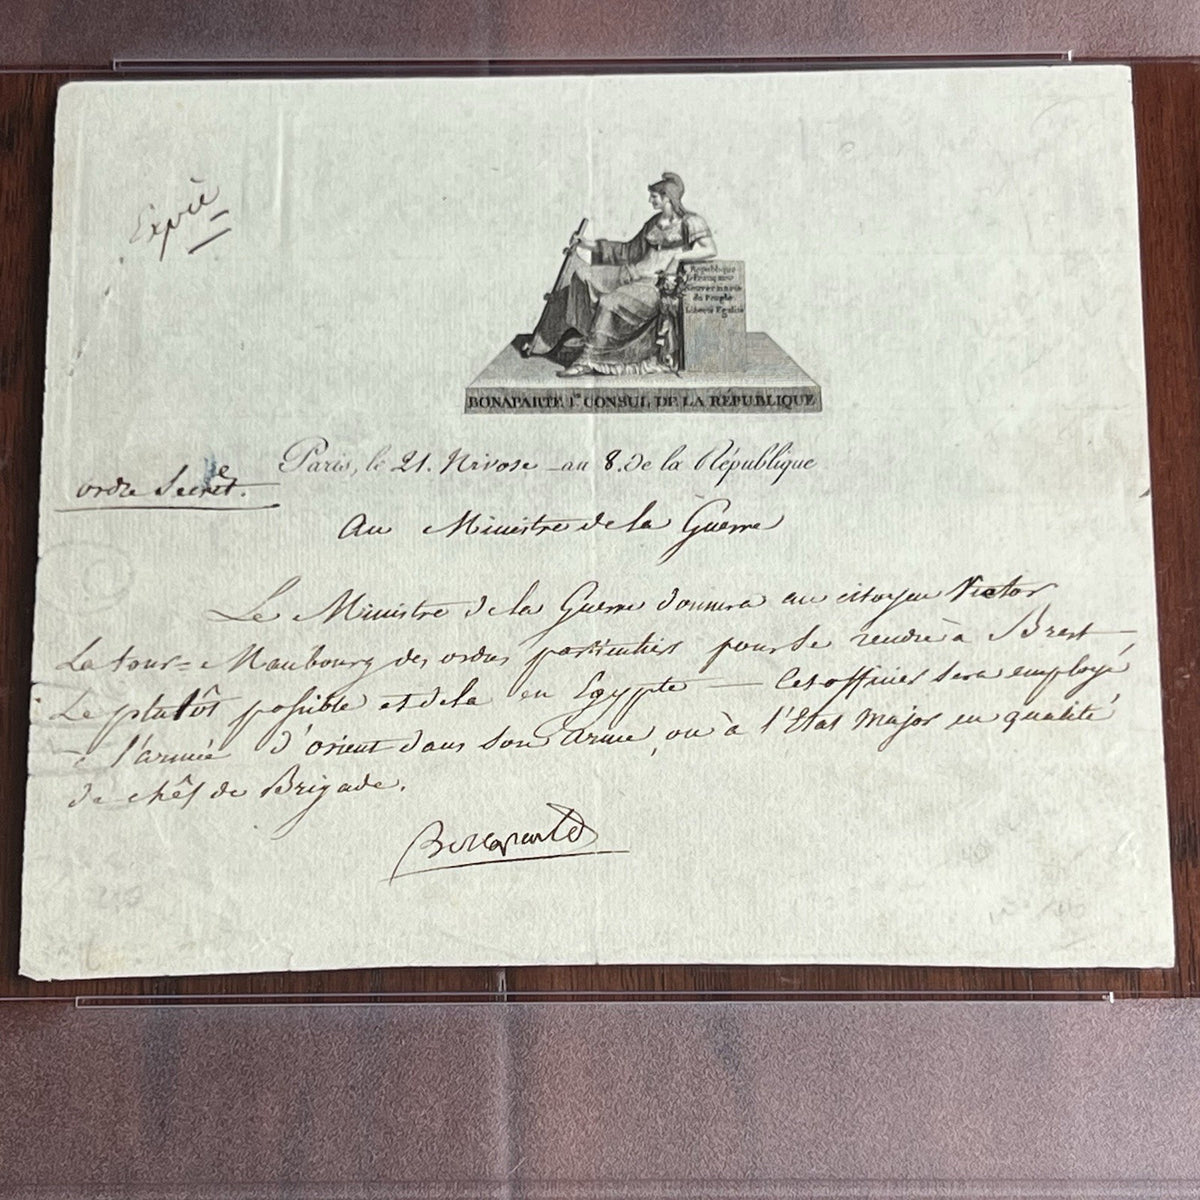 Expié
République
Française
Souveraineté
du Peuple
Liberté Egalité
BONAPARTE 1er CONSUL DE LA RÉPUBLIQUE
Paris, le 21. Nivose au 8. de la République
ordre Secret.
Au Ministre de la Guerre
Le Ministre de la Guerre donnera au citoyen Victor
Latour=Maubourg des ordres particuliers pour se rendre à Brest
Le plutôt possible et de la en Egypte — Cet officier sera employé
à l'armée d'orient dans son arme, ou à l'Etat Major en qualité
de chêf de Brigade.
Bonaparte